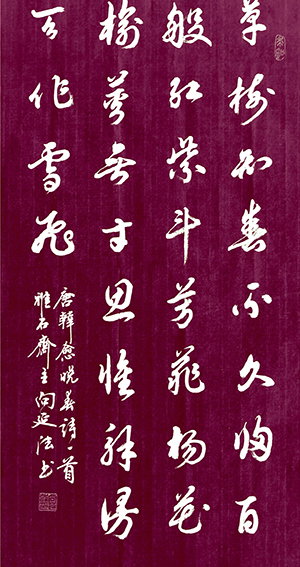 草树知春不久归百
般红紫斗芳菲杨花
榆荚无才思惟解漫
天作雪飞
唐韩愈晚春诗一首
雅石斋主向延法书